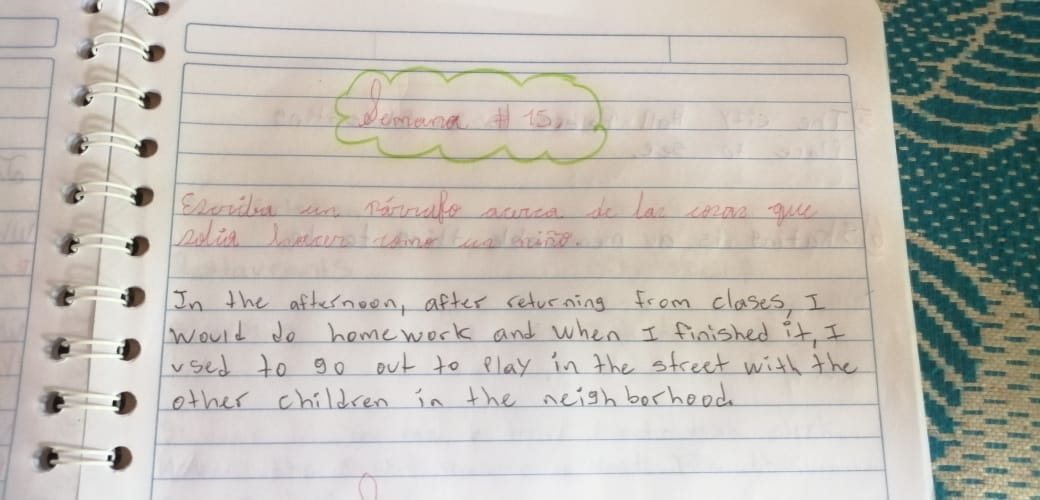 Semana # 15.
Escriba un párrafo acerca de las cosas que
solía hacer como un niño.
In the afternoon, after returning from clases, I
would do homework and when I finished it, I
used to go out to play in the street with the
other children in the neighborhood.